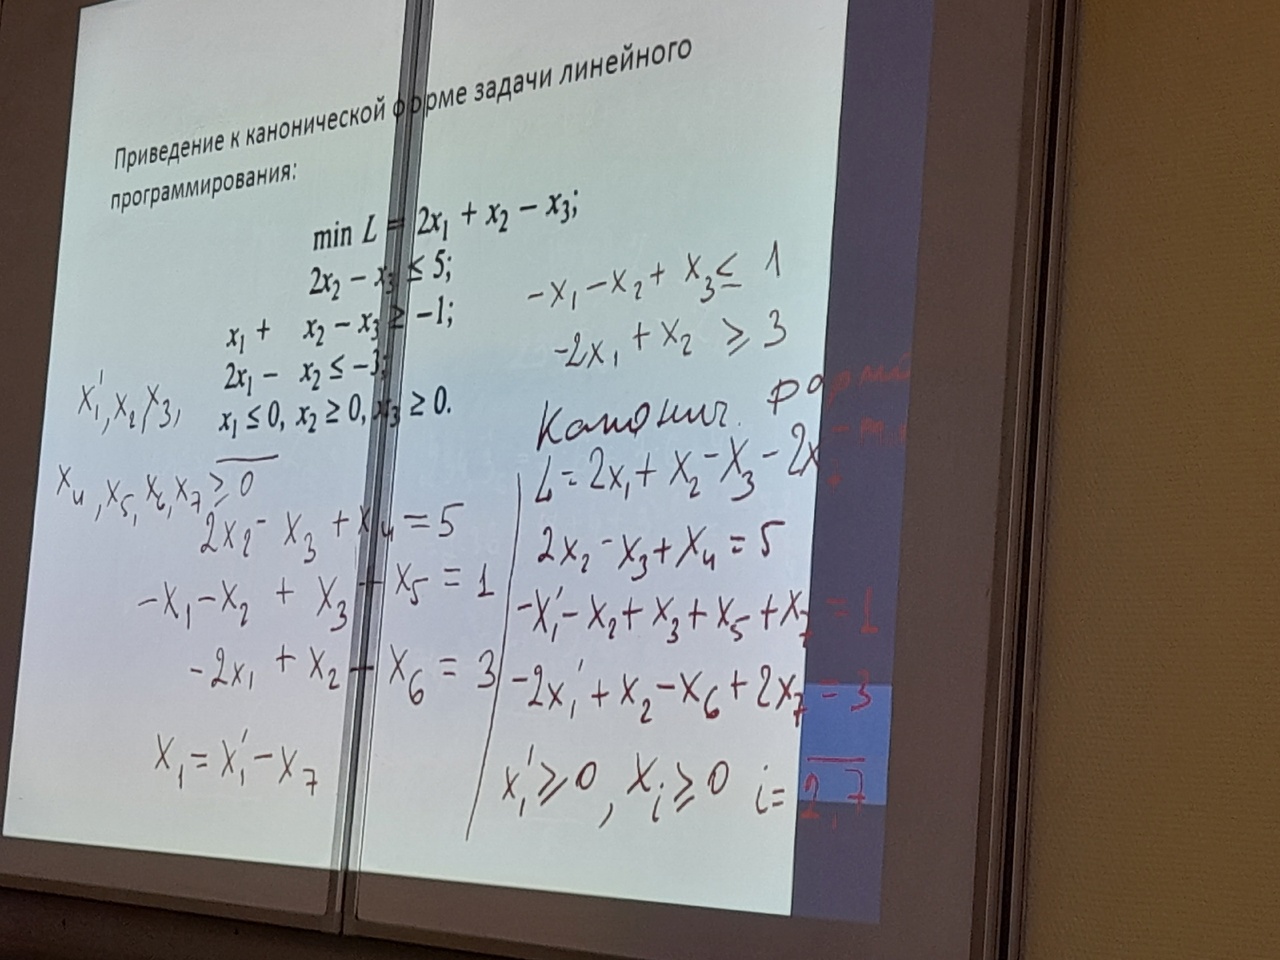 Приведение к канонической форме задачи линейного
программирования:
min L = 2x₁ + x₂ − x₃;
2x₂ − x₃ ≤ 5;
x₁ + x₂ − x₃ ≥ −1;
2x₁ − x₂ ≤ −3;
x₁ ≤ 0, x₂ ≥ 0, x₃ ≥ 0.
x₁', x₂, x₃,
x₄, x₅, x₆, x₇ ≥ 0
2x₂ − x₃ + x₄ = 5
−x₁ − x₂ + x₃ + x₅ = 1
−2x₁ + x₂ − x₆ = 3
x₁ = x₁' − x₇
−x₁ − x₂ + x₃ ≤ 1
−2x₁ + x₂ ≥ 3
Канонич.
L = 2x₁ + x₂ − x₃ − 2x
2x₂ − x₃ + x₄ = 5
−x₁' − x₂ + x₃ + x₅ + x₇ = 1
−2x₁' + x₂ − x₆ + 2x₇ = 3
x₁' ≥ 0, xᵢ ≥ 0 i = 2,7